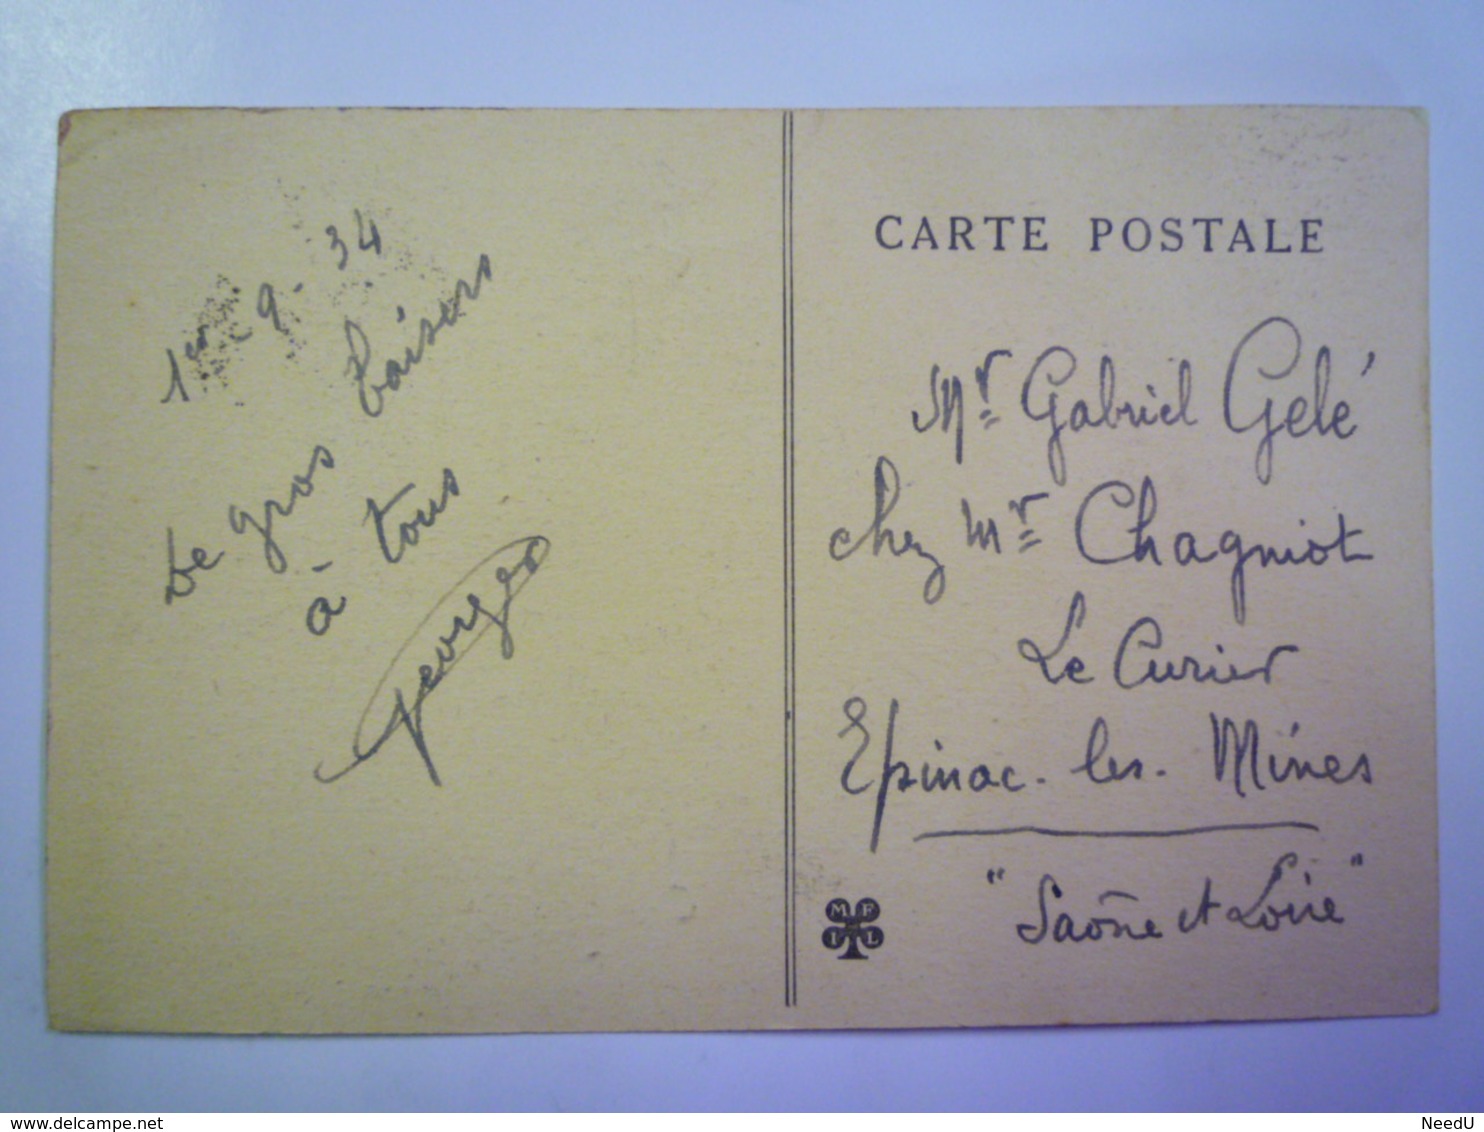 1er - 9 - 34
De gros baisers
à tous
Georges
CARTE POSTALE
Mr Gabriel Gelé
chez Mr Chagniot
Le Curier
Epinac-les-Mines
"Saône et Loire"
M F
I L
delcampe.net
NeedU